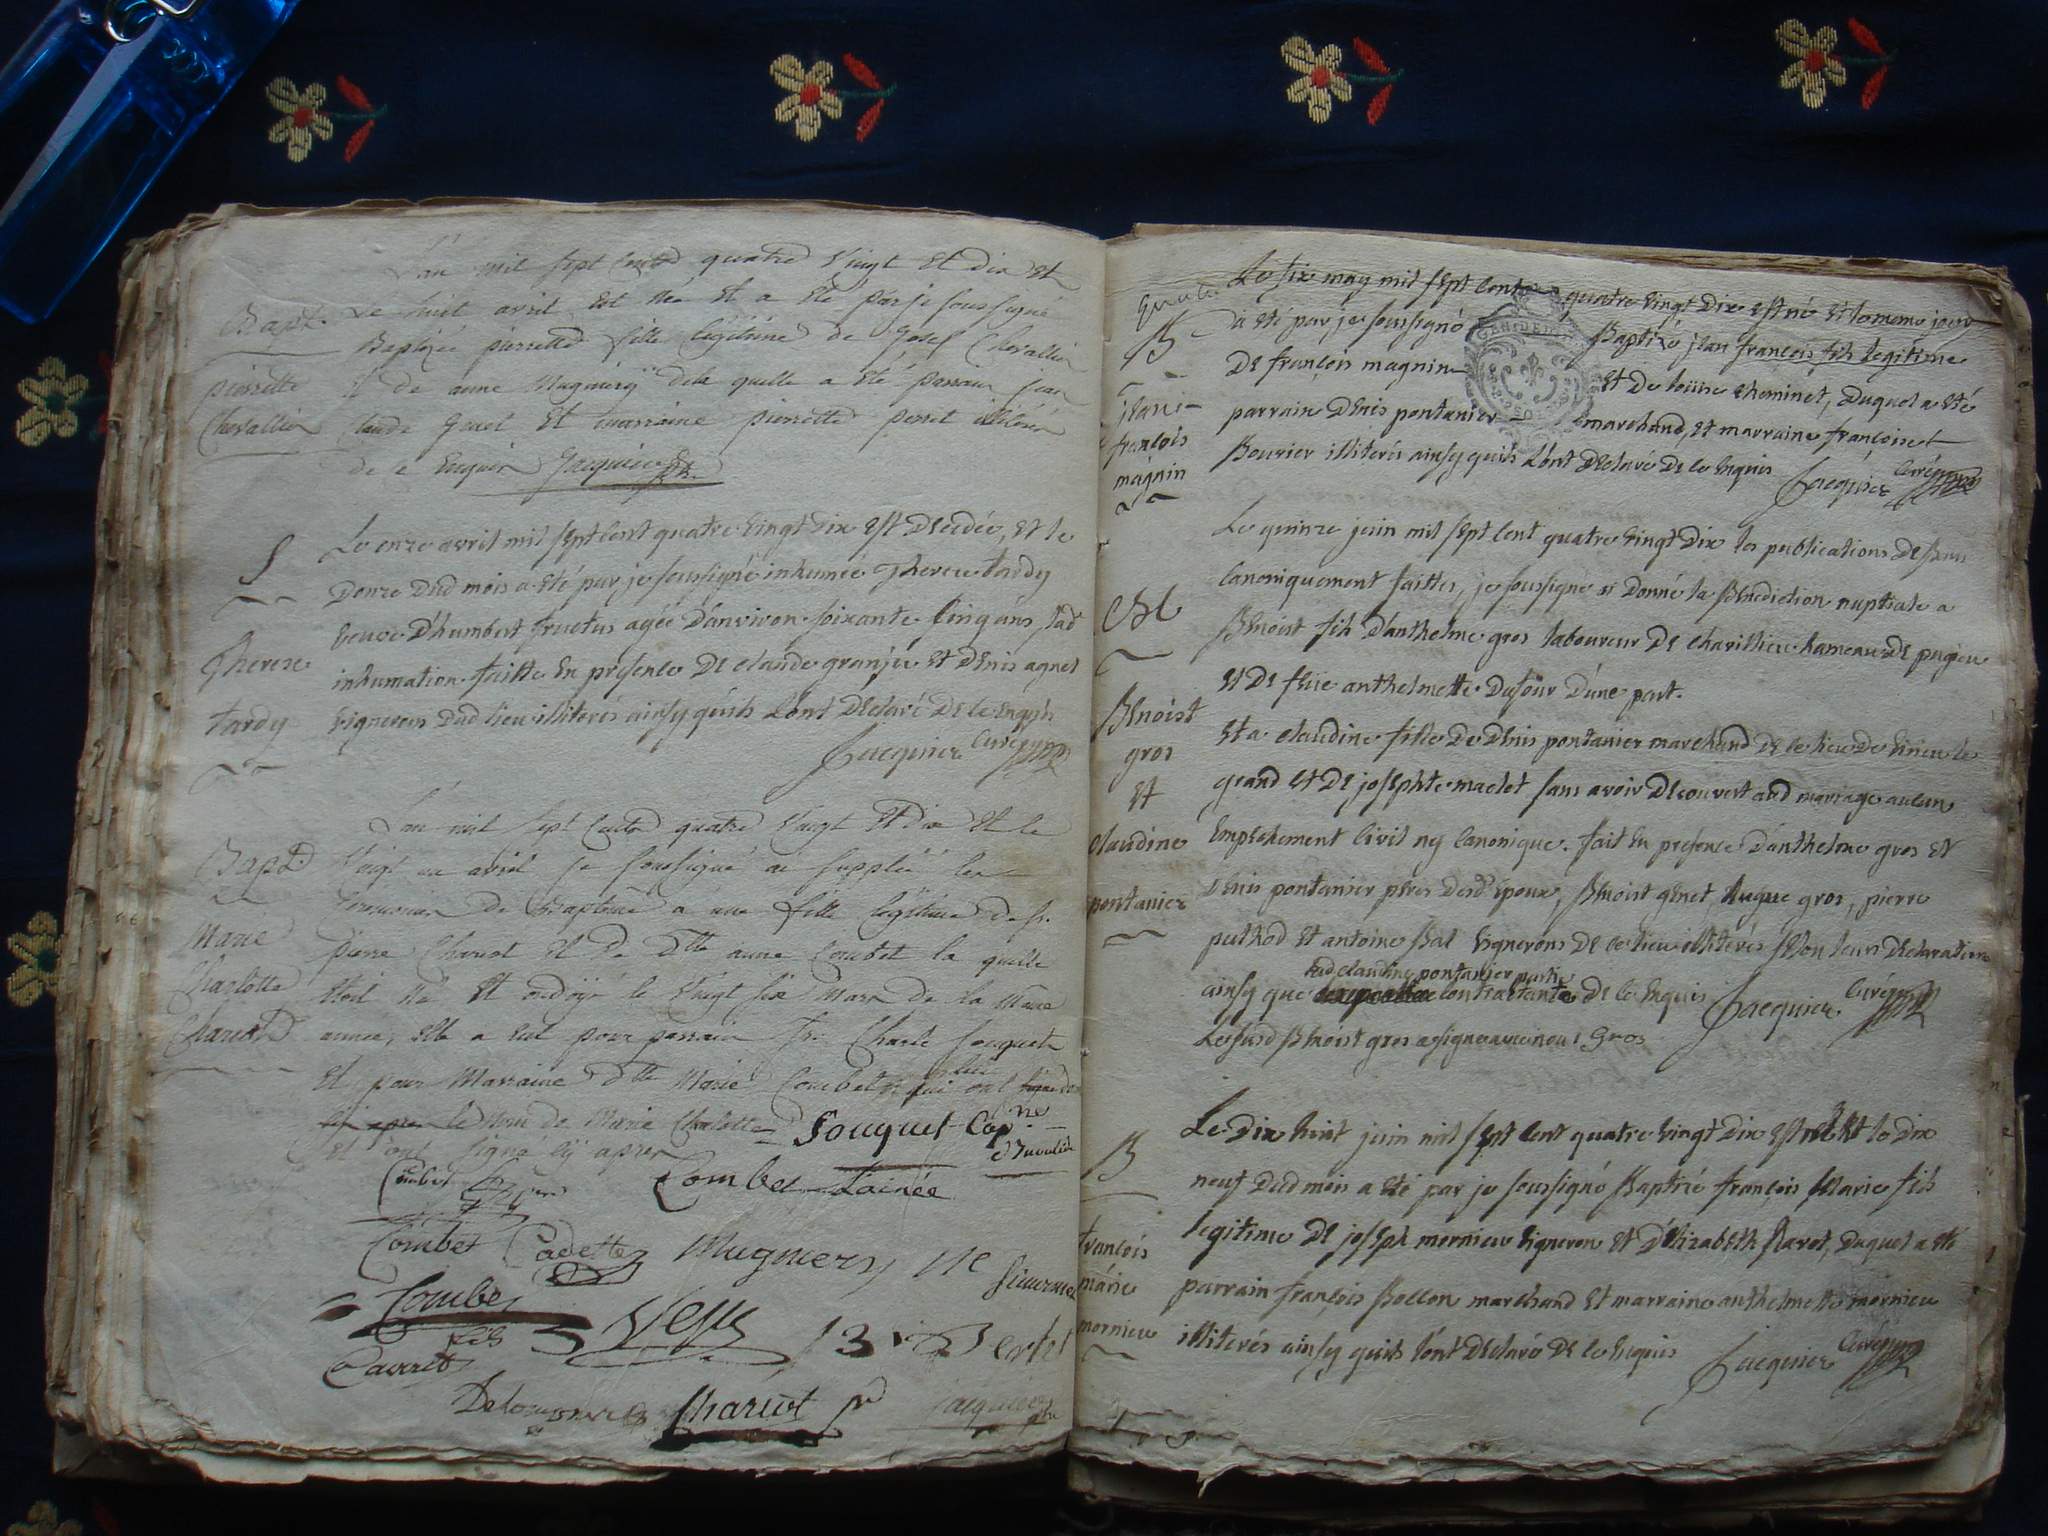 L'an mil sept cents quatre vingt et dix et
Bapt. le huit avril est née et a été par je soussigné
Baptizée pierrette fille légitime de Josef Chevallier
pierrette et de anne Mugniery de la quelle a été parrain jean
Chevallier claude genet et marraine pierrette perret illiterés
de ce Enquis Jacquier
S
Le onze avril mil sept cent quatre vingt dix est décédée, et le
Donze dud mois a été par, je soussigné inhumée Therese tardy
veuve D'humbert fructus agée d'anviron soixante cinq ans, lad
Therese
inhumation faitte en présence De claude granjer et Denis agnel
tardy
vignerons dud lieu illiterés ainsy qu'ils L'ont Declaré De ce enquis
Jacquier Curé
L'an mil sept cents quatre vingt et dix et le
Bapt. vingt un avril je soussigné ai supplée les
ceremonies de Bapteme a une fille légitime de sr.
Marie pierre Chariot et de dlle anne Combet la quelle
Charlotte étoit née et ondoyé le vingt six mars de la même
Chariot année, elle a eut pour parrain sr. Charle fouquet
et pour Marraine dlle Marie Combet qui lui ont
le nom de Marie Charlotte
et ont signé cy apres
fouquet Cap.ne
d'invalide
Combet Combet Lainée
Combet Cadette Mugniery
Combet
fils
Cavret
Chariot Jacquier
Le six may mil sept cent quatre vingt Dix est né et le meme jour
B
a été par je soussigné Baptizé jean françois fils legitime
De françois magnin et De louise cheminet, Duquel a été
jean
parrain Denis pontanier marchand, et marraine françoise
françois
Bouvier illiterés ainsy qu'ils L'ont Declaré De ce enquis
magnin
Jacquier Curé
Le quinze juin mil sept cent quatre vingt Dix les publications De Bans
Canoniquement faittes, je soussigné ai Donné la Bénédiction nuptiale a
M
Benoist fils d'anthelme gros laboureur De charillieu hameau De pugieu
et De feüe anthelmette Dufour D'une part.
Benoist
gros
et a claudine fille De Denis pontanier marchand De ce lieu De virieu le
et
grand et De josephte maclet sans avoir Decouvert aud mariage aucun
claudine
Empechement Civil ny Canonique. fait en présence D'anthelme gros et
pontanier
Denis pontanier peres desd. époux, Benoist genet, hugue gros, pierre
puthod et antoine Bal vignerons De ce lieu illiterés selon leur Declaration
lad claudine pontanier partie
ainsy que contractante De ce enquis Jacquier Curé
Ledit Benoist gros a signé avec nous Gros
Le Dix huit juin mil sept cent quatre vingt Dix est né et le Dix
B
neuf Dud mois a été par je soussigné Baptizé françois Marie fils
legitime De joseph mornieu vigneron et D'élizabeth Ravot, Duquel a été
françois
marie
parrain françois Bollon marchand et marraine anthelmette mornieu
mornieu
illiterés ainsy qu'ils l'ont Declaré De ce enquis Jacquier Curé